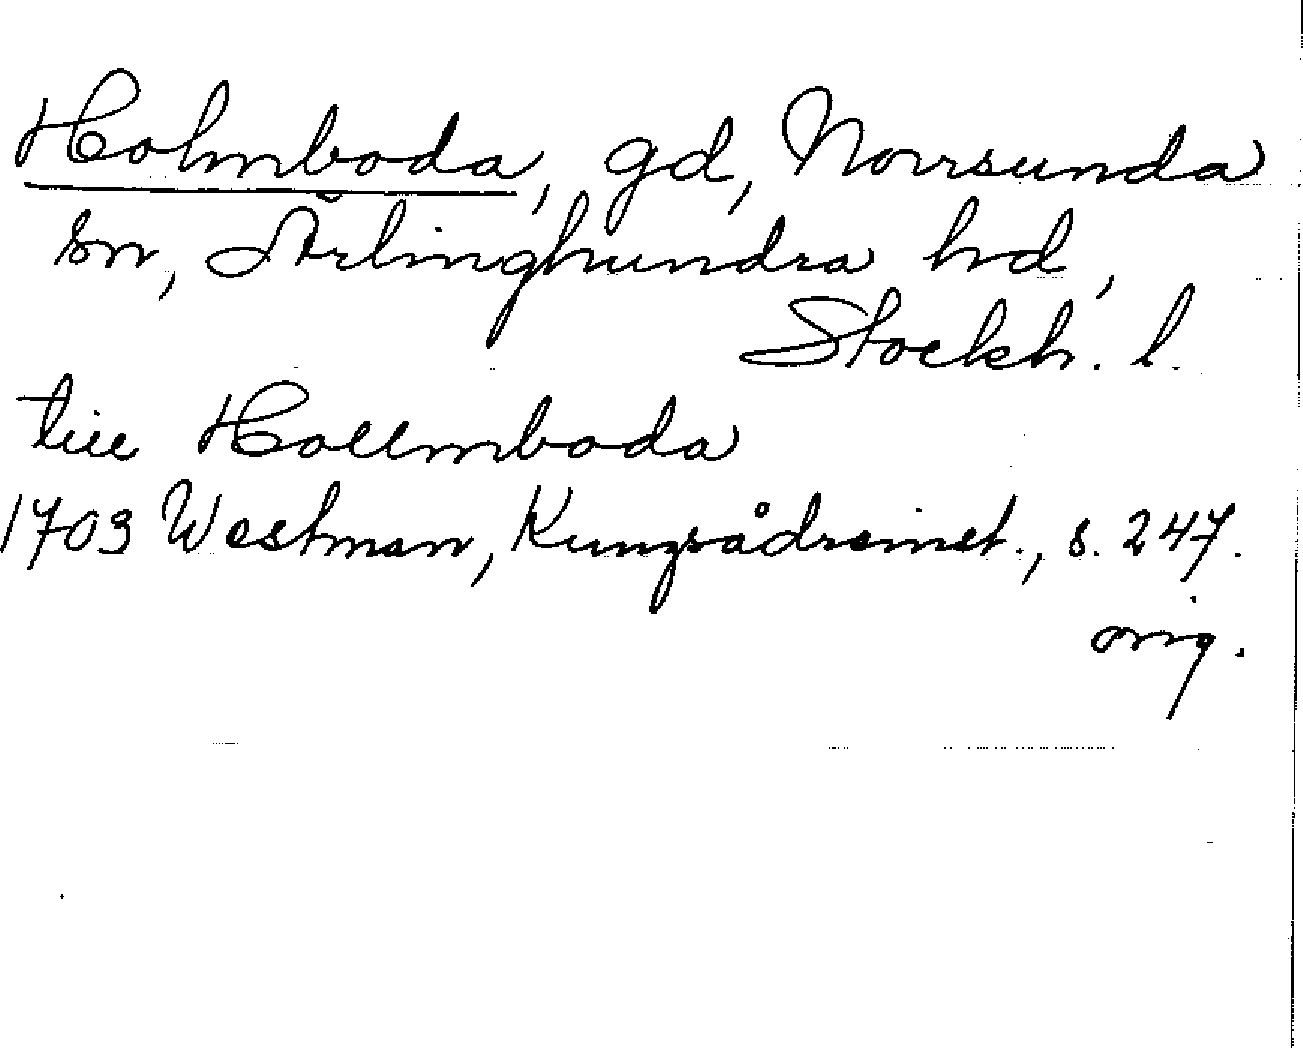 Holmboda, gd, Norrsunda
sn, Ärlinghundra hd,
Stockh. l.
till Hollmboda
1703 Westman, Kungsådreinst., s. 247.
orig.